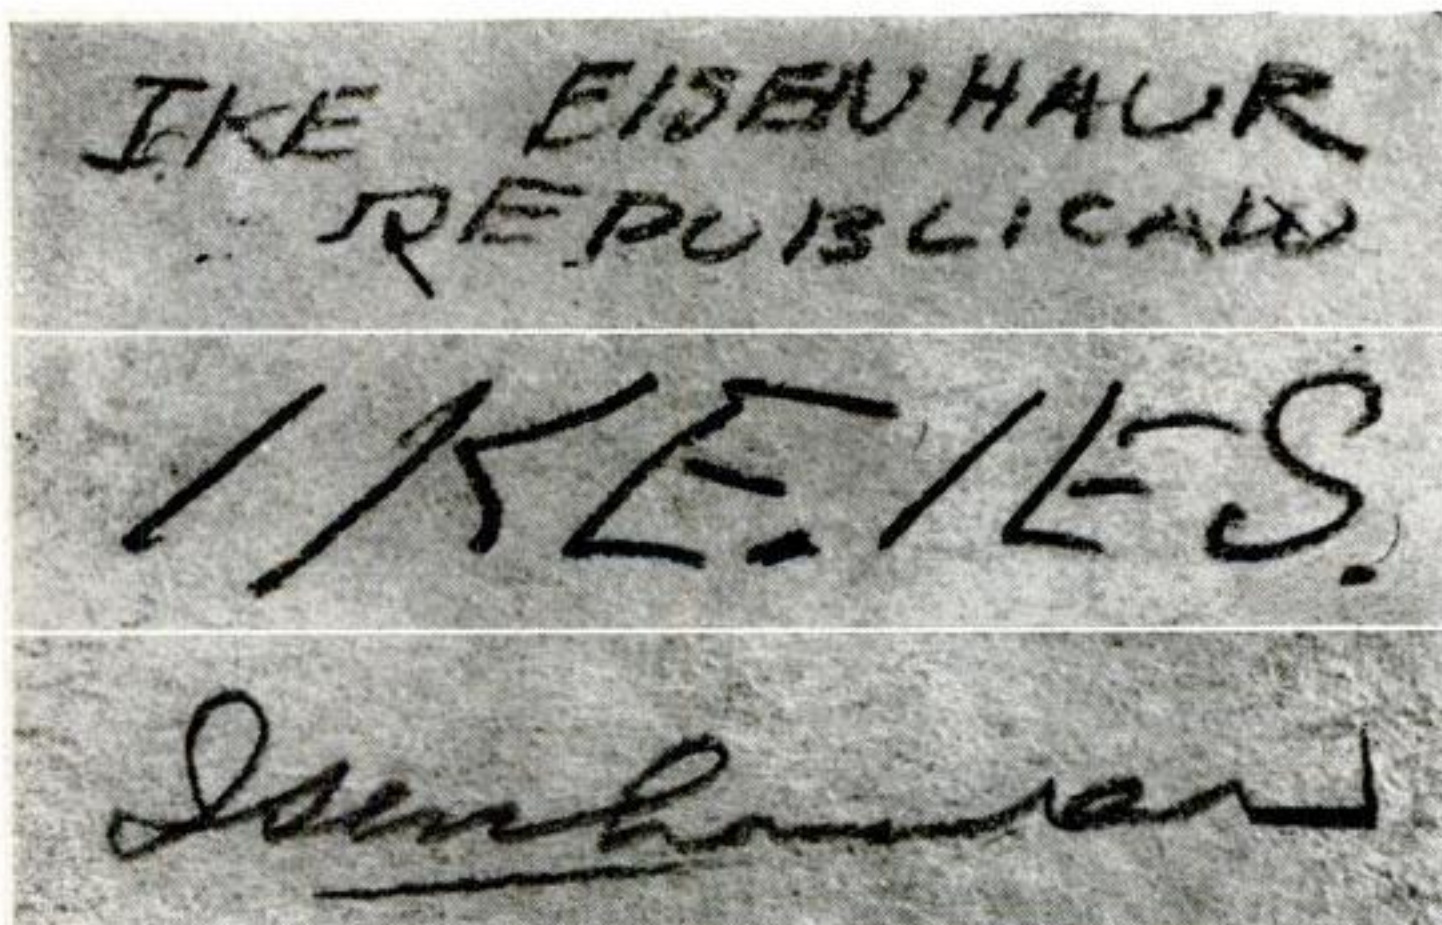 IKE EISENHAUR
REPUBLICAN
IKE. IES.
Isenhowar